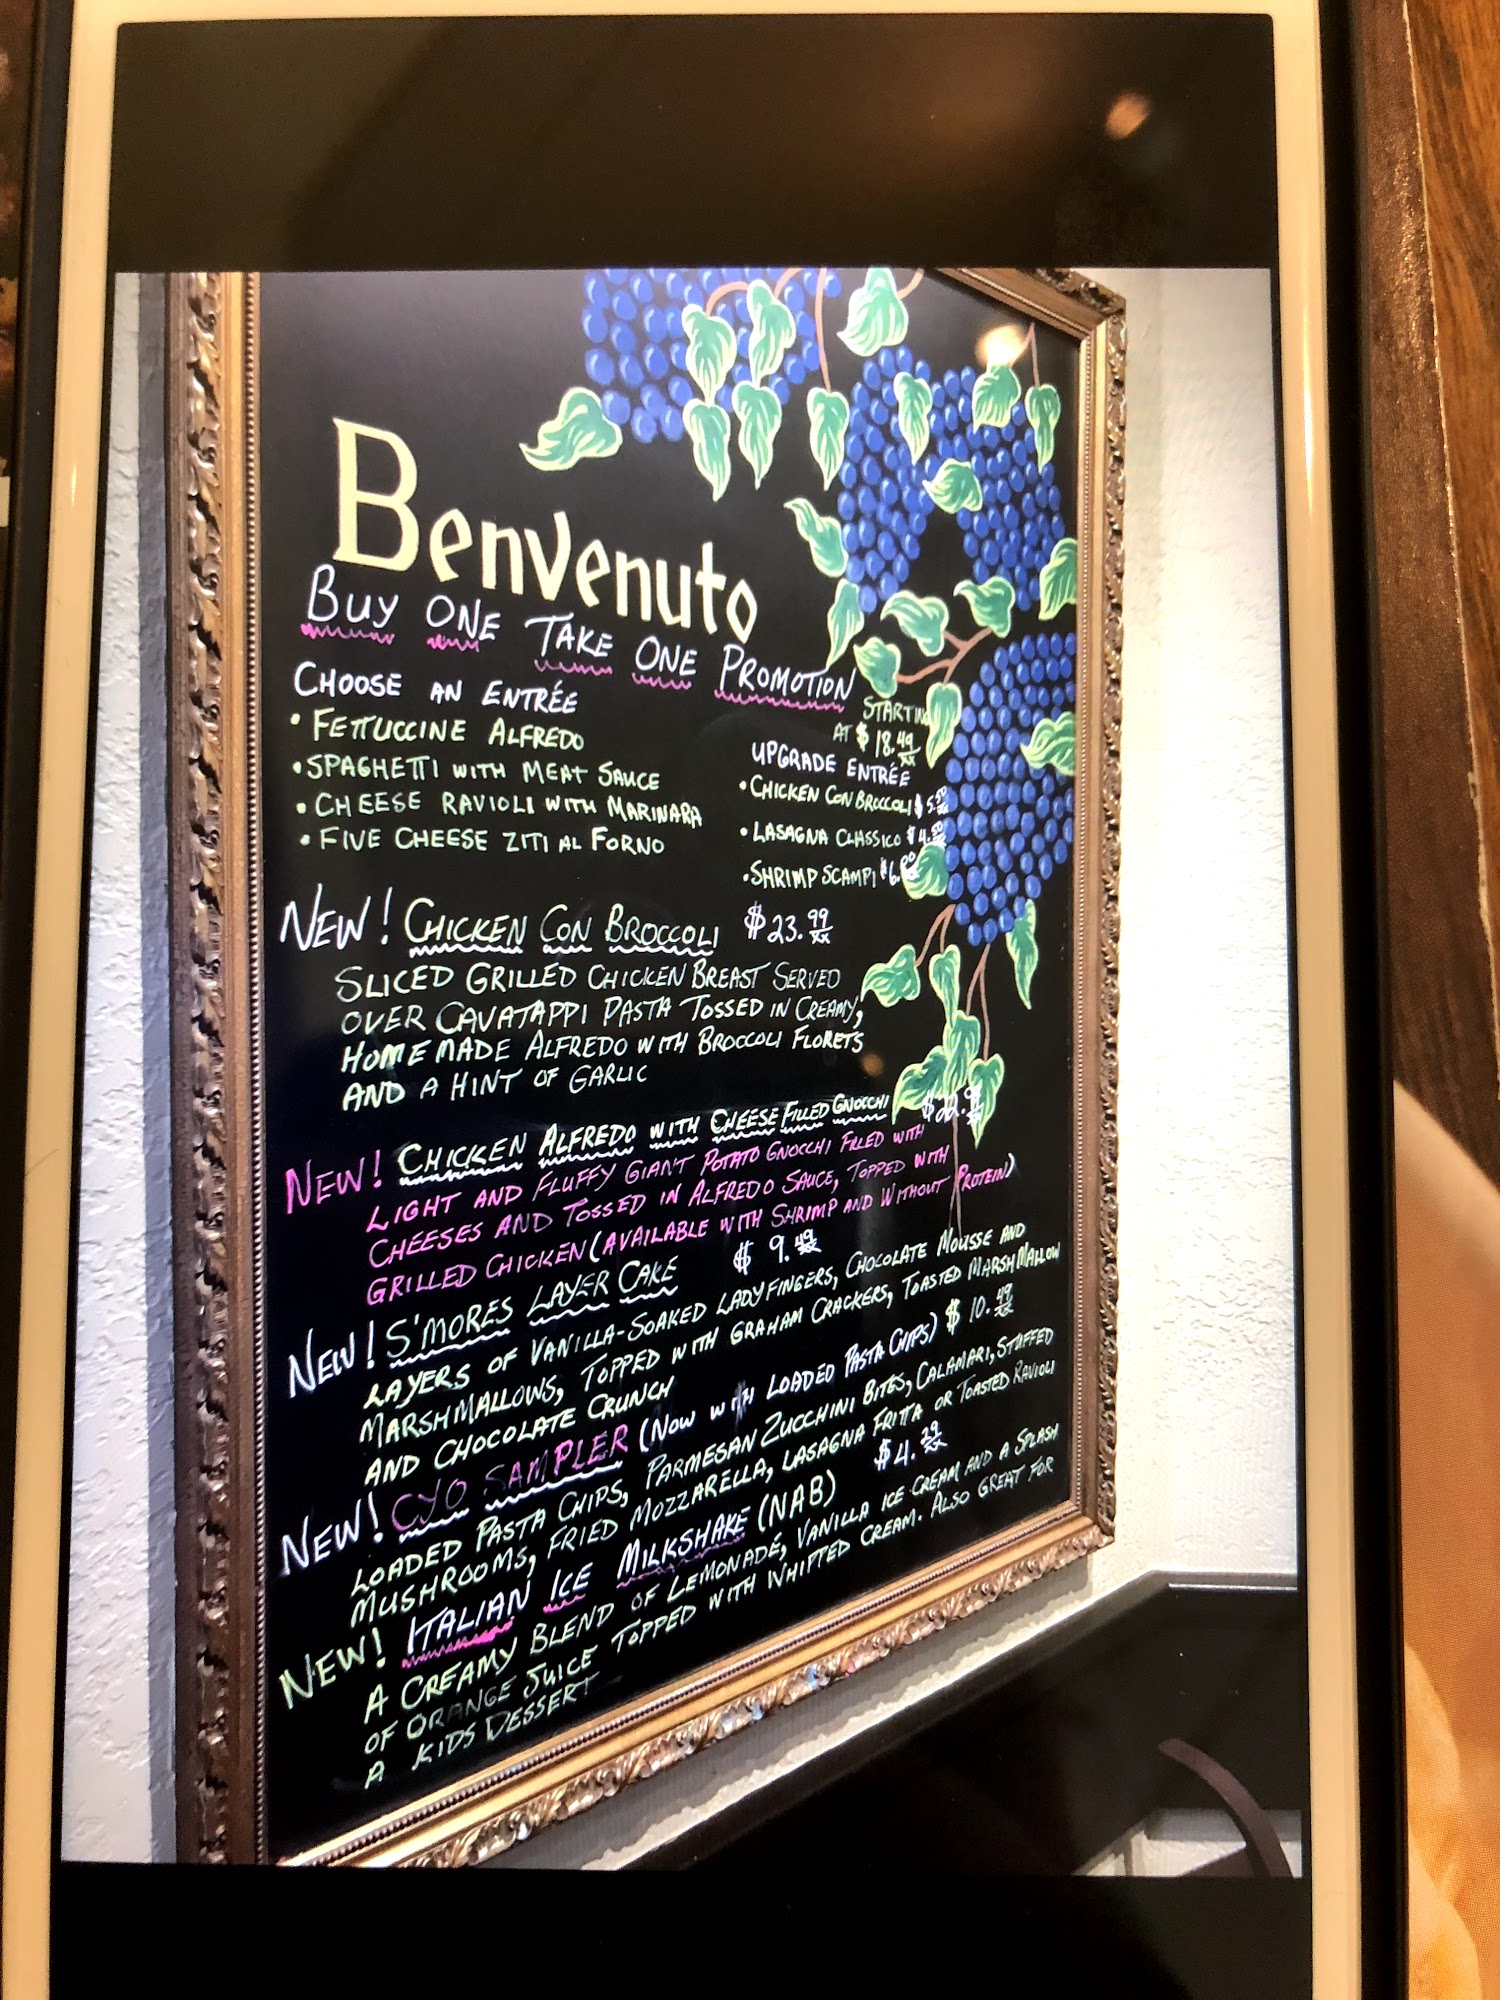 Benvenuto
BUY ONE TAKE ONE PROMOTION
STARTING
AT $18.49
CHOOSE AN ENTRÉE
• FETTUCCINE ALFREDO
• SPAGHETTI WITH MEAT SAUCE
• CHEESE RAVIOLI WITH MARINARA
• FIVE CHEESE ZITI AL FORNO
UPGRADE ENTRÉE
• CHICKEN CON BROCCOLI $5.50
• LASAGNA CLASSICO $4.50
• SHRIMP SCAMPI $6.
NEW! CHICKEN CON BROCCOLI $23.99
SLICED GRILLED CHICKEN BREAST SERVED
OVER CAVATAPPI PASTA TOSSED IN CREAMY,
HOMEMADE ALFREDO WITH BROCCOLI FLORETS
AND A HINT OF GARLIC
NEW! CHICKEN ALFREDO WITH CHEESE FILLED GNOCCHI $22.
LIGHT AND FLUFFY GIANT POTATO GNOCCHI FILLED WITH
CHEESES AND TOSSED IN ALFREDO SAUCE, TOPPED WITH
GRILLED CHICKEN (AVAILABLE WITH SHRIMP AND WITHOUT PROTEIN)
NEW! S'MORES LAYER CAKE $9.49
LAYERS OF VANILLA-SOAKED LADYFINGERS, CHOCOLATE MOUSSE AND
MARSHMALLOWS, TOPPED WITH GRAHAM CRACKERS, TOASTED MARSHMALLOW
AND CHOCOLATE CRUNCH
NEW! CYO SAMPLER (NOW WITH LOADED PASTA CHIPS) $10.49
LOADED PASTA CHIPS, PARMESAN ZUCCHINI BITES, CALAMARI, STUFFED
MUSHROOMS, FRIED MOZZARELLA, LASAGNA FRITTA OR TOASTED RAVIOLI
NEW! ITALIAN ICE MILKSHAKE (NAB) $4.29
A CREAMY BLEND OF LEMONADE, VANILLA ICE CREAM AND A SPLASH
OF ORANGE JUICE TOPPED WITH WHIPPED CREAM. ALSO GREAT FOR
A KIDS DESSERT